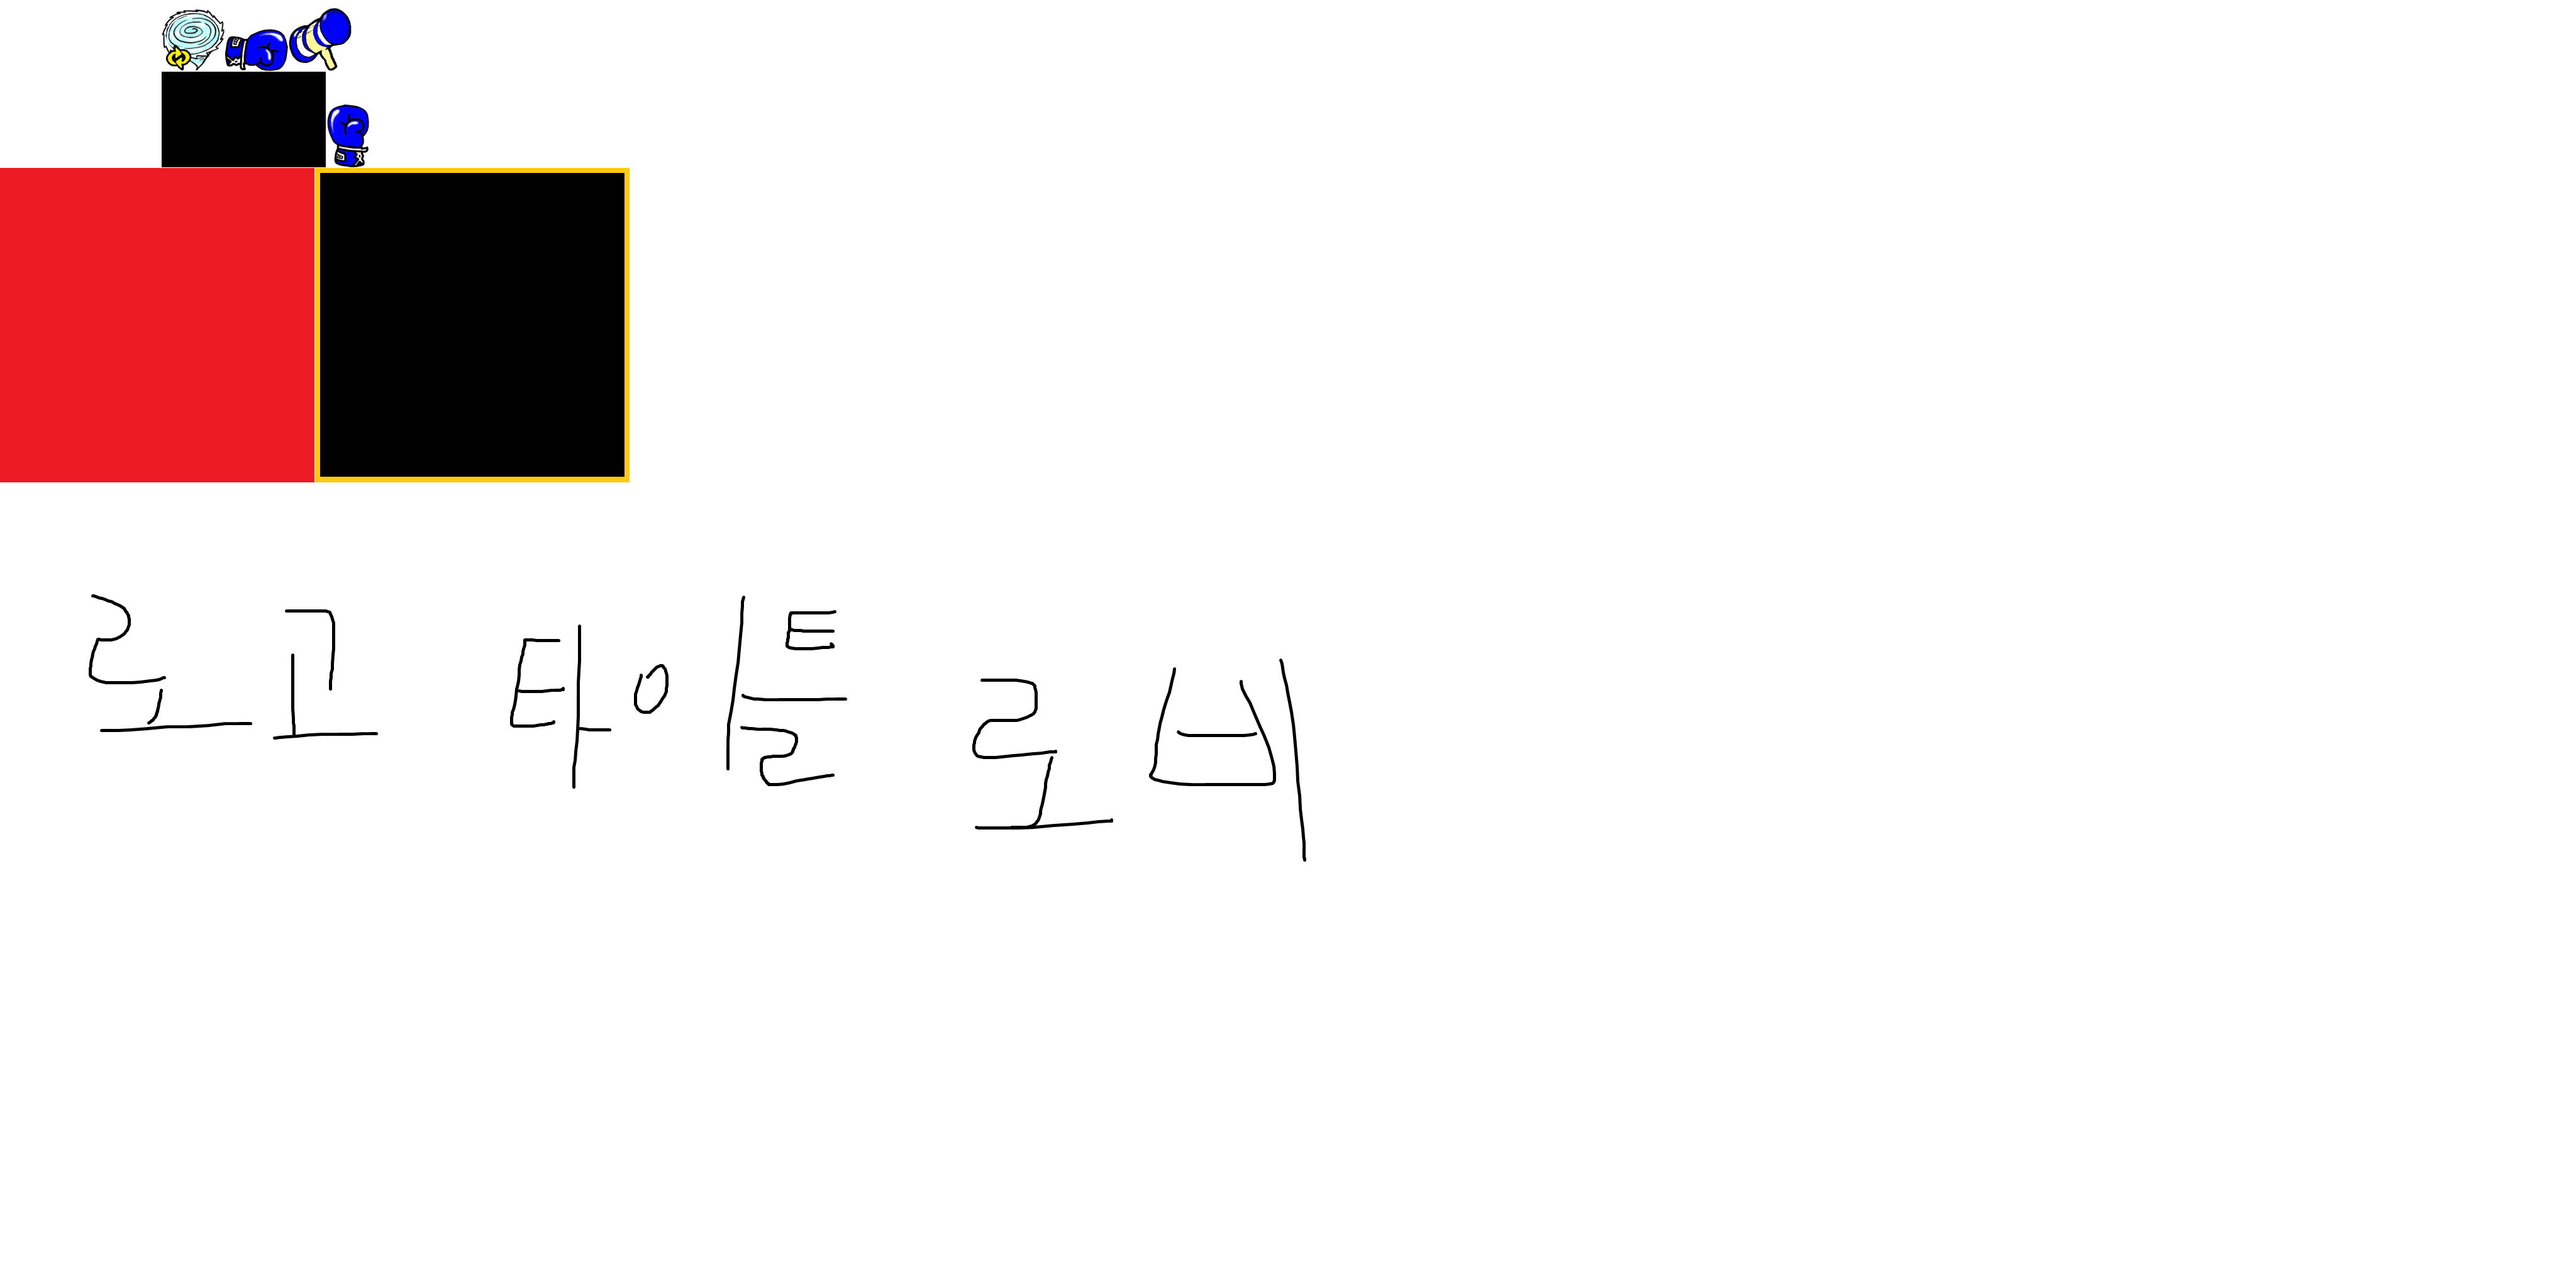 로고 타이틀 로비